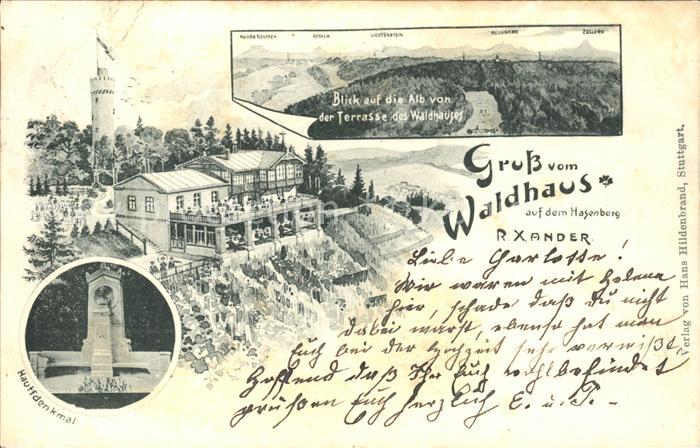 HOHEN NEUFFEN ACHALM LICHTENSTEIN ROSSBERG ZOLLERN
Blick auf die Alb von
der Terrasse des Waldhauses
Gruß vom
Waldhaus
auf dem Hasenberg
R. XANDER.
Liebe Charlotte!
Wir waren mit Helene
hier, schade daß Du nicht
dabei warst, ebenso hat man
Euch bei der Hochzeit sehr vermißt
Hoffend daß Ihr Euch wohlbefindet
grüßen Euch herzlich E. u. T.
Hauffdenkmal
Verlag von Hans Hildenbrand, Stuttgart.